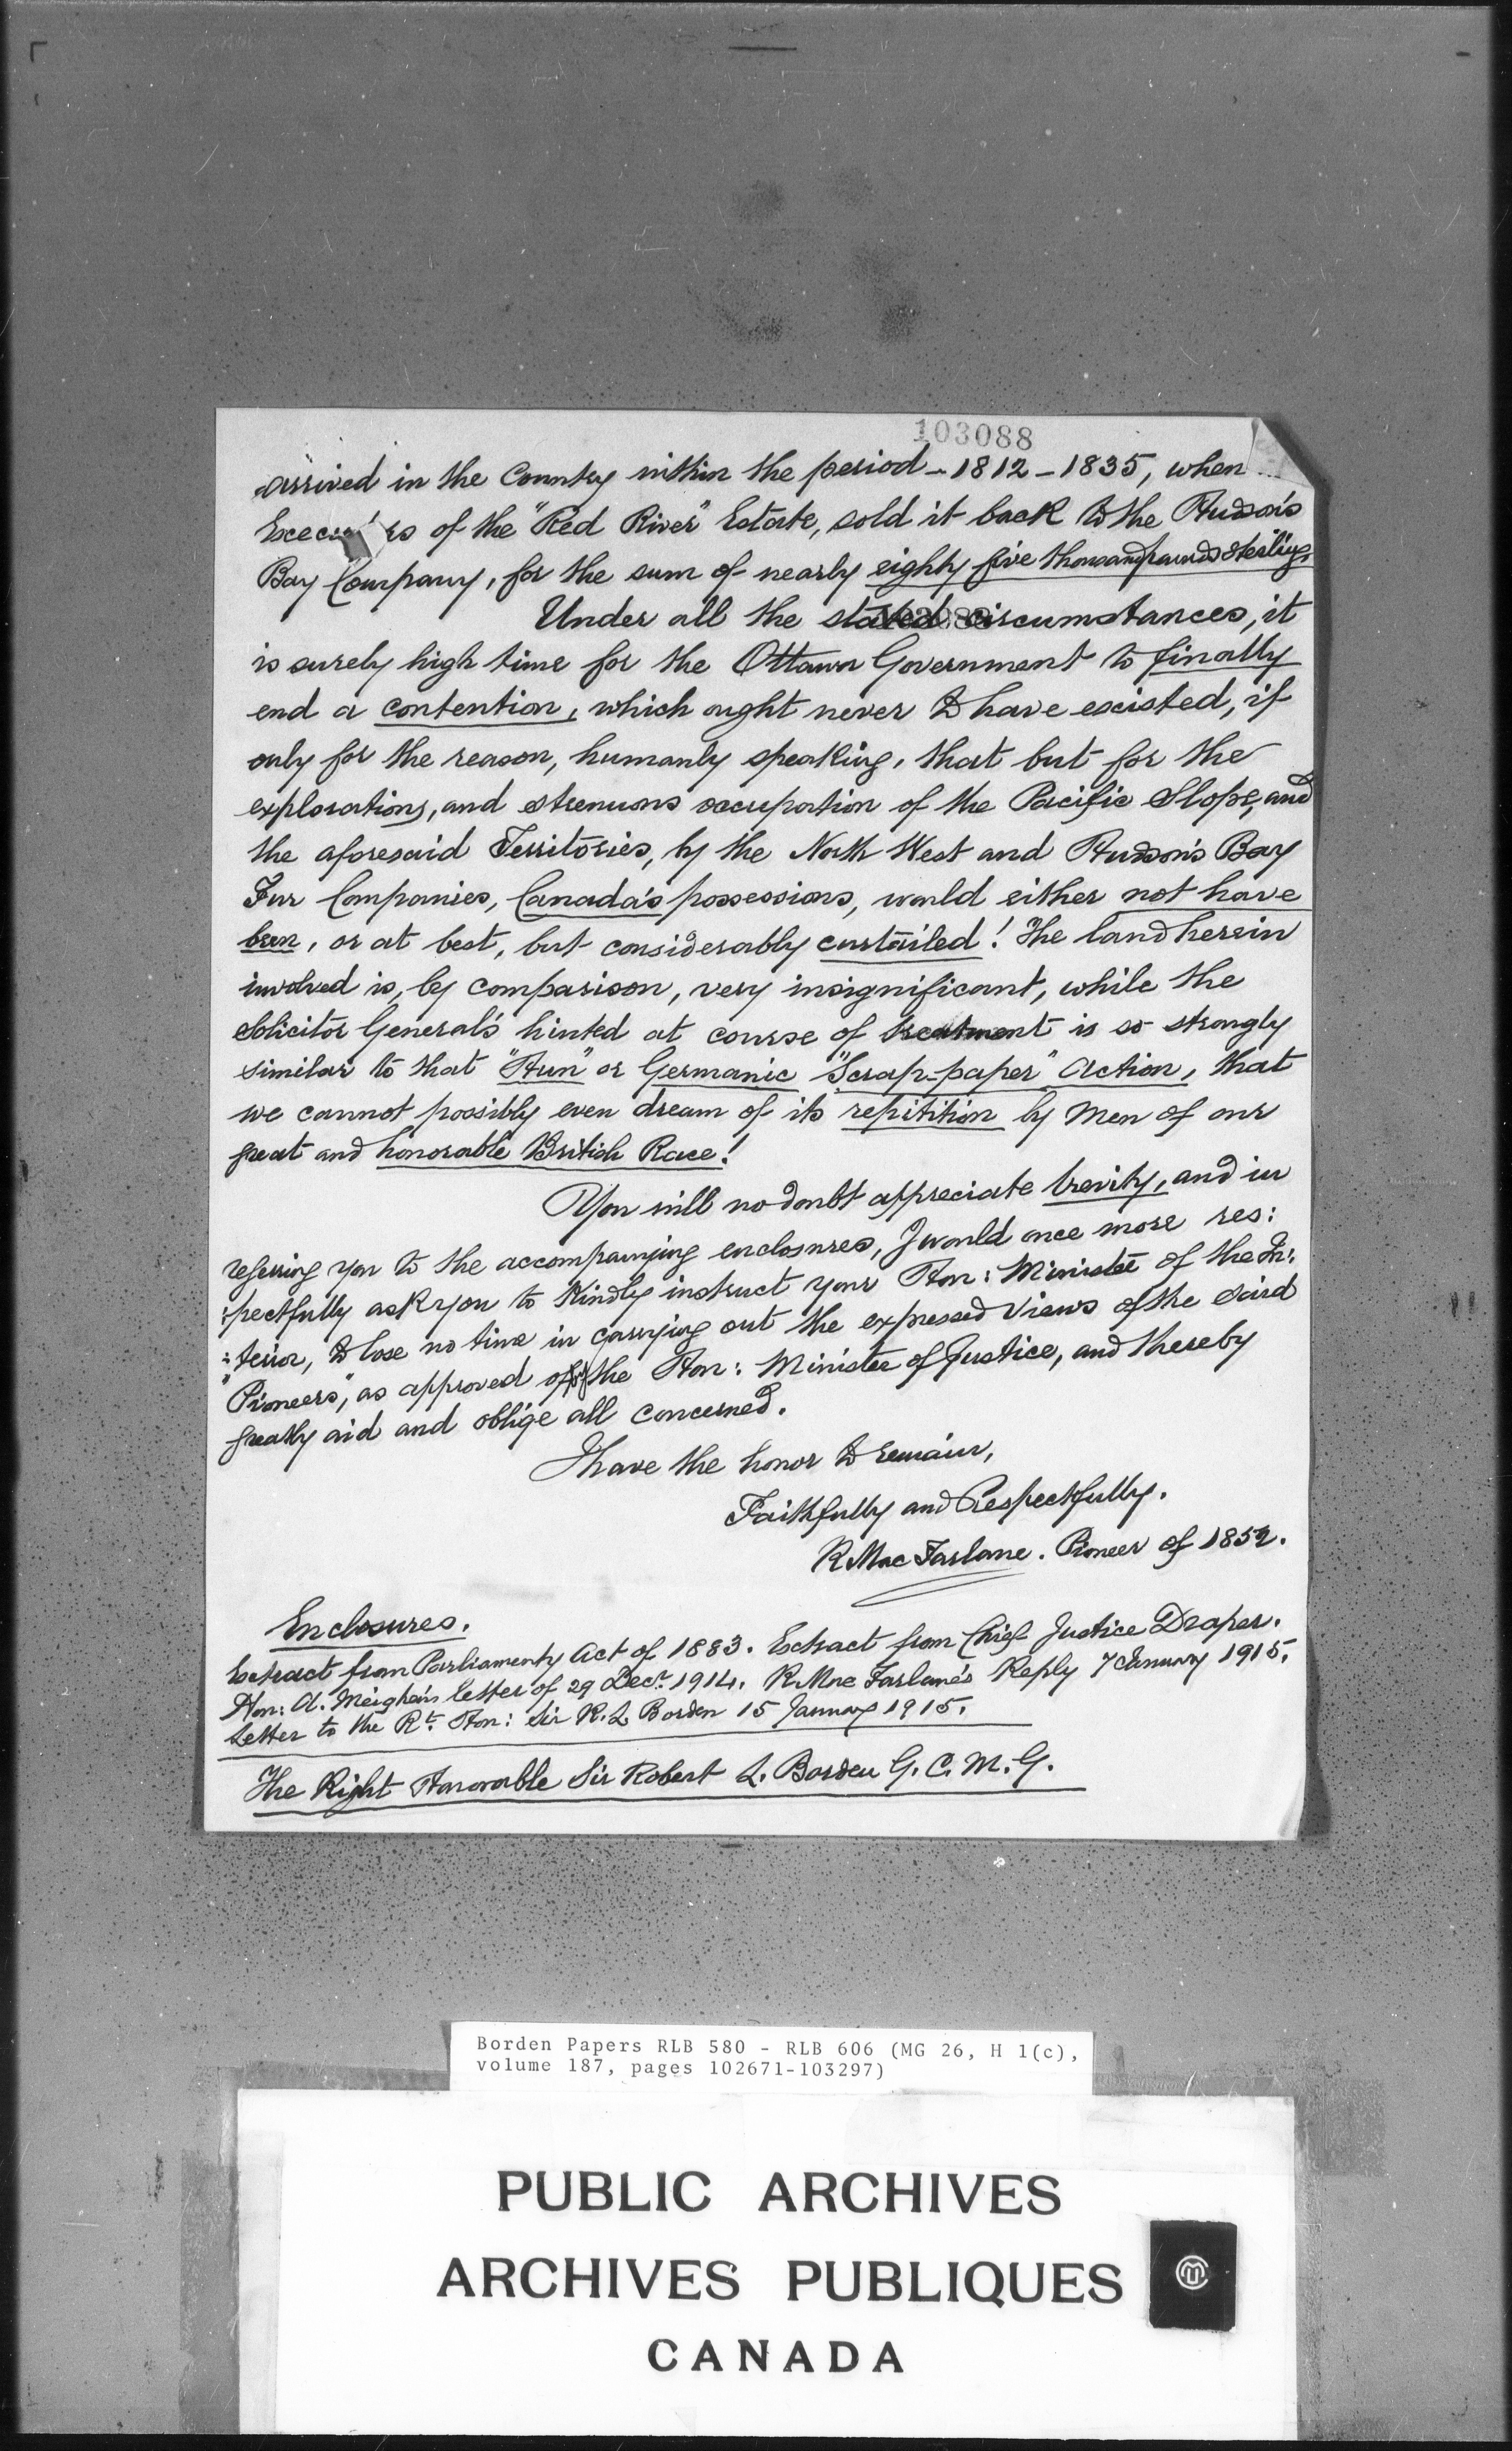 103088
arrived in the Country within the period – 1812 – 1835, when
of the "Red River" Estate, sold it back to the Hudson's
Bay Company, for the sum of nearly eighty five thousand pounds sterling.
Under all the stated circumstances, it
is surely high time for the Ottawa Government to finally
end a contention, which ought never to have existed, if
only for the reason, humanly speaking, that but for the
explorations, and strenuous occupation of the Pacific Slope, and
the aforesaid Territories, by the North West and Hudson's Bay
Fur Companies, Canada's possessions, would either not have
been, or at best, but considerably curtailed! The land herein
involved is, by comparison, very insignificant, while the
Solicitor General's hinted at course of treatment is so strongly
similar to that "Hun" or Germanic "Scrap-paper" Action, that
we cannot possibly even dream of its repitition by Men of our
great and honorable British Race!
You will no doubt appreciate brevity, and in
refering you to the accompanying enclosures, I would once more res:
:pectfully ask you to Kindly instruct your Hon: Minister of the In:
:terior, to lose no time in carrying out the expressed views of the said
"Pioneers", as approved of by the Hon: Minister of Justice, and thereby
greatly aid and oblige all concerned.
I have the honor to remain,
Faithfully and Respectfully.
R MacFarlane. Pioneer of 1852.
Enclosures.
Extract from Parliamenty Act of 1883. Extract from Chief Justice Draper.
Hon: A. Meighen's letter of 29 Decr. 1914. R. MacFarlane's Reply 7 January 1915.
Letter to the Rt. Hon: Sir R. L Borden 15 January 1915.
The Right Honorable Sir Robert L. Borden G. C. M. G.
Borden Papers RLB 580 - RLB 606 (MG 26, H 1(c),
volume 187, pages 102671-103297)
PUBLIC ARCHIVES
ARCHIVES PUBLIQUES
CANADA